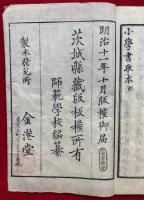 小學書取本
明治十一年十月版權御届
茨城縣藏版板權所有
師範學校編纂
製本發兌所
金港堂